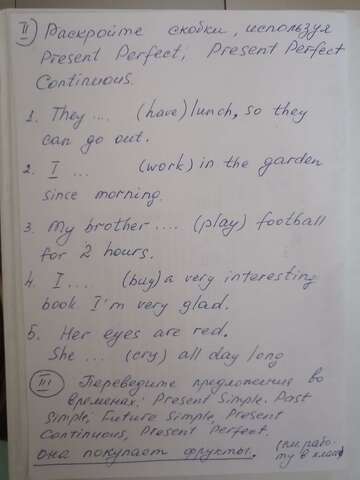 II) Раскройте скобки, используя
Present Perfect, Present Perfect
Continuous.
1. They .... (have) lunch, so they
can go out.
2. I ... (work) in the garden
since morning.
3. My brother .... (play) football
for 2 hours.
4. I .... (buy) a very interesting
book. I'm very glad.
5. Her eyes are red.
She ... (cry) all day long
III) Переведите предложения во
временах: Present Simple. Past
Simple, Future Simple, Present
Continuous, Present Perfect.
она покупает фрукты.